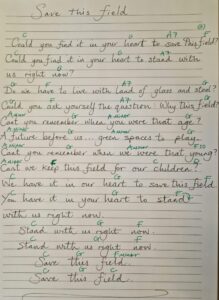 Save this field
C F A7 G
Could you find it in your heart to save this field?
C F A7
Could you find it in your heart to stand with
G
us right now?
C F A7 G
Do we have to live with land of glass and steel?
C F A7 G
Could you ask yourself the question: Why this field?
Aminor G F
Cant you remember when you were that age?
Aminor G F
A future before us.. green spaces to play
Aminor G
Cant you remember when we were that young?
Aminor F G
Can't we keep this field for our children?
C G F
We have it in our heart to save this field
C G F
You have it in your heart to stand
with us right now.
C G F
Stand with us right now
C G F
Stand with us right now
C G Fminor
Save this field.
C G C
Save this field.